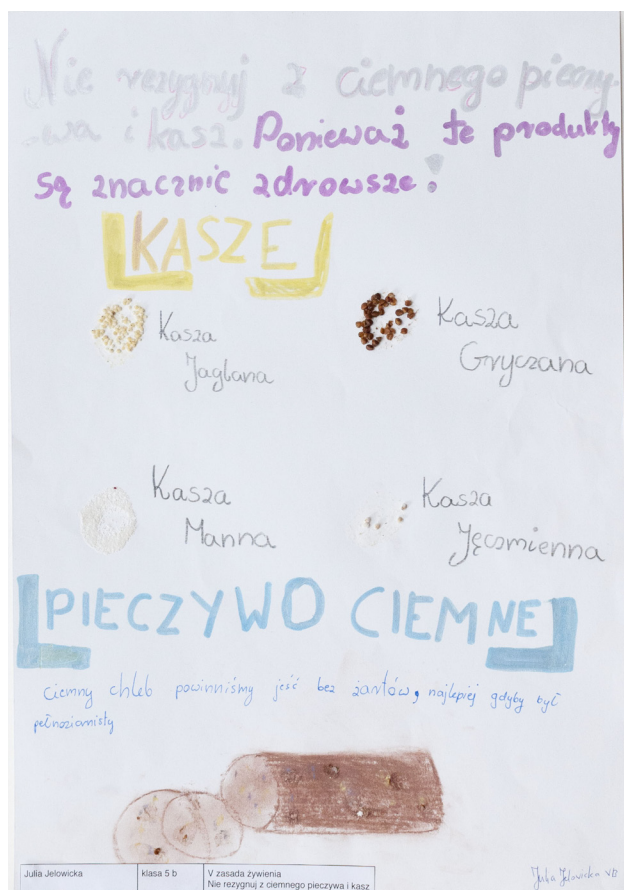 Nie rezygnuj z ciemnego pieczy
-wa i kasz. Ponieważ te produkty
są znacznie zdrowsze!
KASZE
Kasza
Jaglana
Kasza
Gryczana
Kasza
Manna
Kasza
Jęczmienna
PIECZYWO CIEMNE
Ciemny chleb powinniśmy jeść bez żartów, najlepiej gdyby był
pełnoziarnisty
Julia Jelowicka klasa 5 b V zasada żywienia
Nie rezygnuj z ciemnego pieczywa i kasz
Julia Jelowicka VB